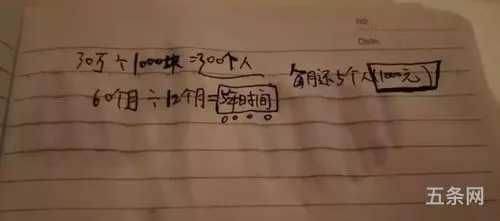 No
Date
30万个1000块=300个人
每月还5个人(1000元)
60个月÷12个月=5年时间
五条网